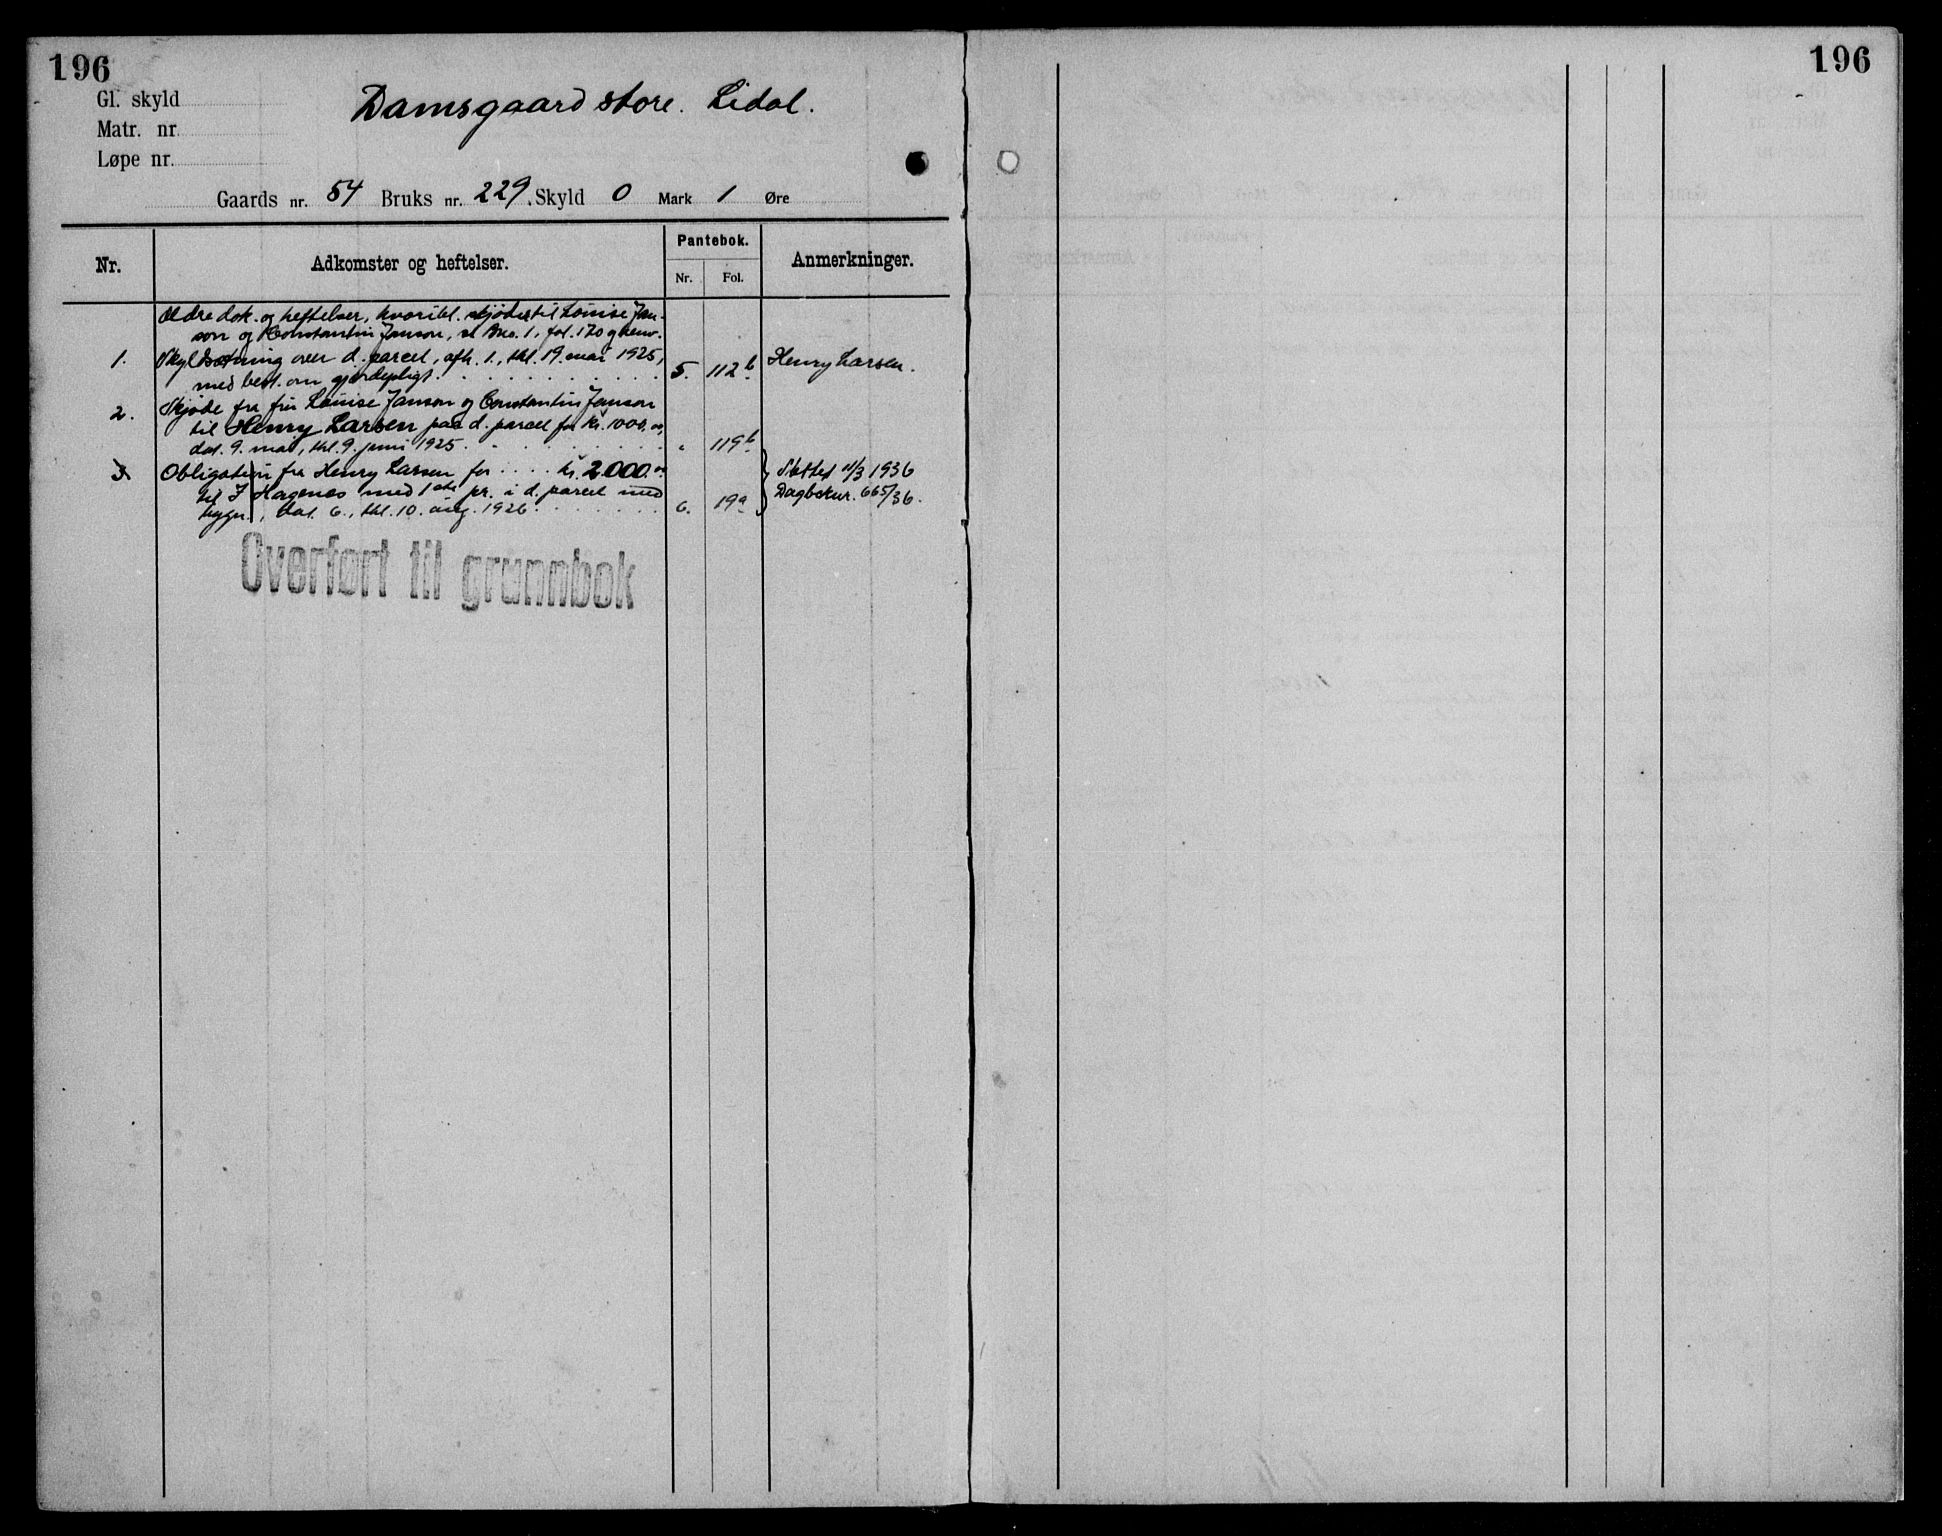 196
196
Gl. skyld
Matr. nr
Løpe nr.
Damsgaard store. Lidal.
Gaards nr. 54 Bruks nr. 229. Skyld 0 Mark 1 Øre
Nr. Adkomster og heftelser. Pantebok. Anmerkninger.
Nr. Fol.
Ældre dok. og heftelser, hvoribl. skjøder til Louise Jan-
son og Constantin Janson, se Bno. 1, fol. 170 g henv.
1. Skyldsetning over d. parcel, afh. 1., thl. 19. mai 1925,
med best. om gjerdepligt. 5. 112 b Henry Larsen.
2. Skjøde fra fru Louise Janson og Constantin Janson
til Henry Larsen paa d. parcel for kr. 1000.00,
dat. 9. mai, thl. 9. juni 1925. " 119 b
3. Obligation fra Henry Larsen for kr. 2000.00 Slettet 11/3 1936
til J Hagenæs med 1ste pr. i d. parcel med Dagboknr. 665/36.
bygn., dat. 6., thl. 10. aug. 1926. 6. 19 a
Overført til grunnbok